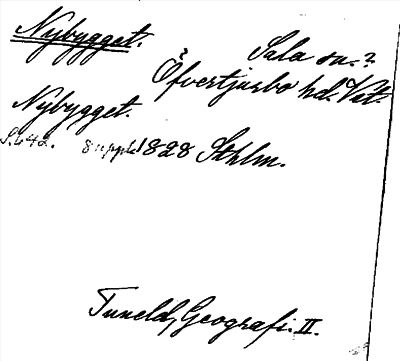 Nybygget.
Sala sn.?
Öfvertjurbo hd. Vst.
Nybygget.
S. 642. 8 uppl. 1828 Sthlm.
Tuneld, Geografi. II.